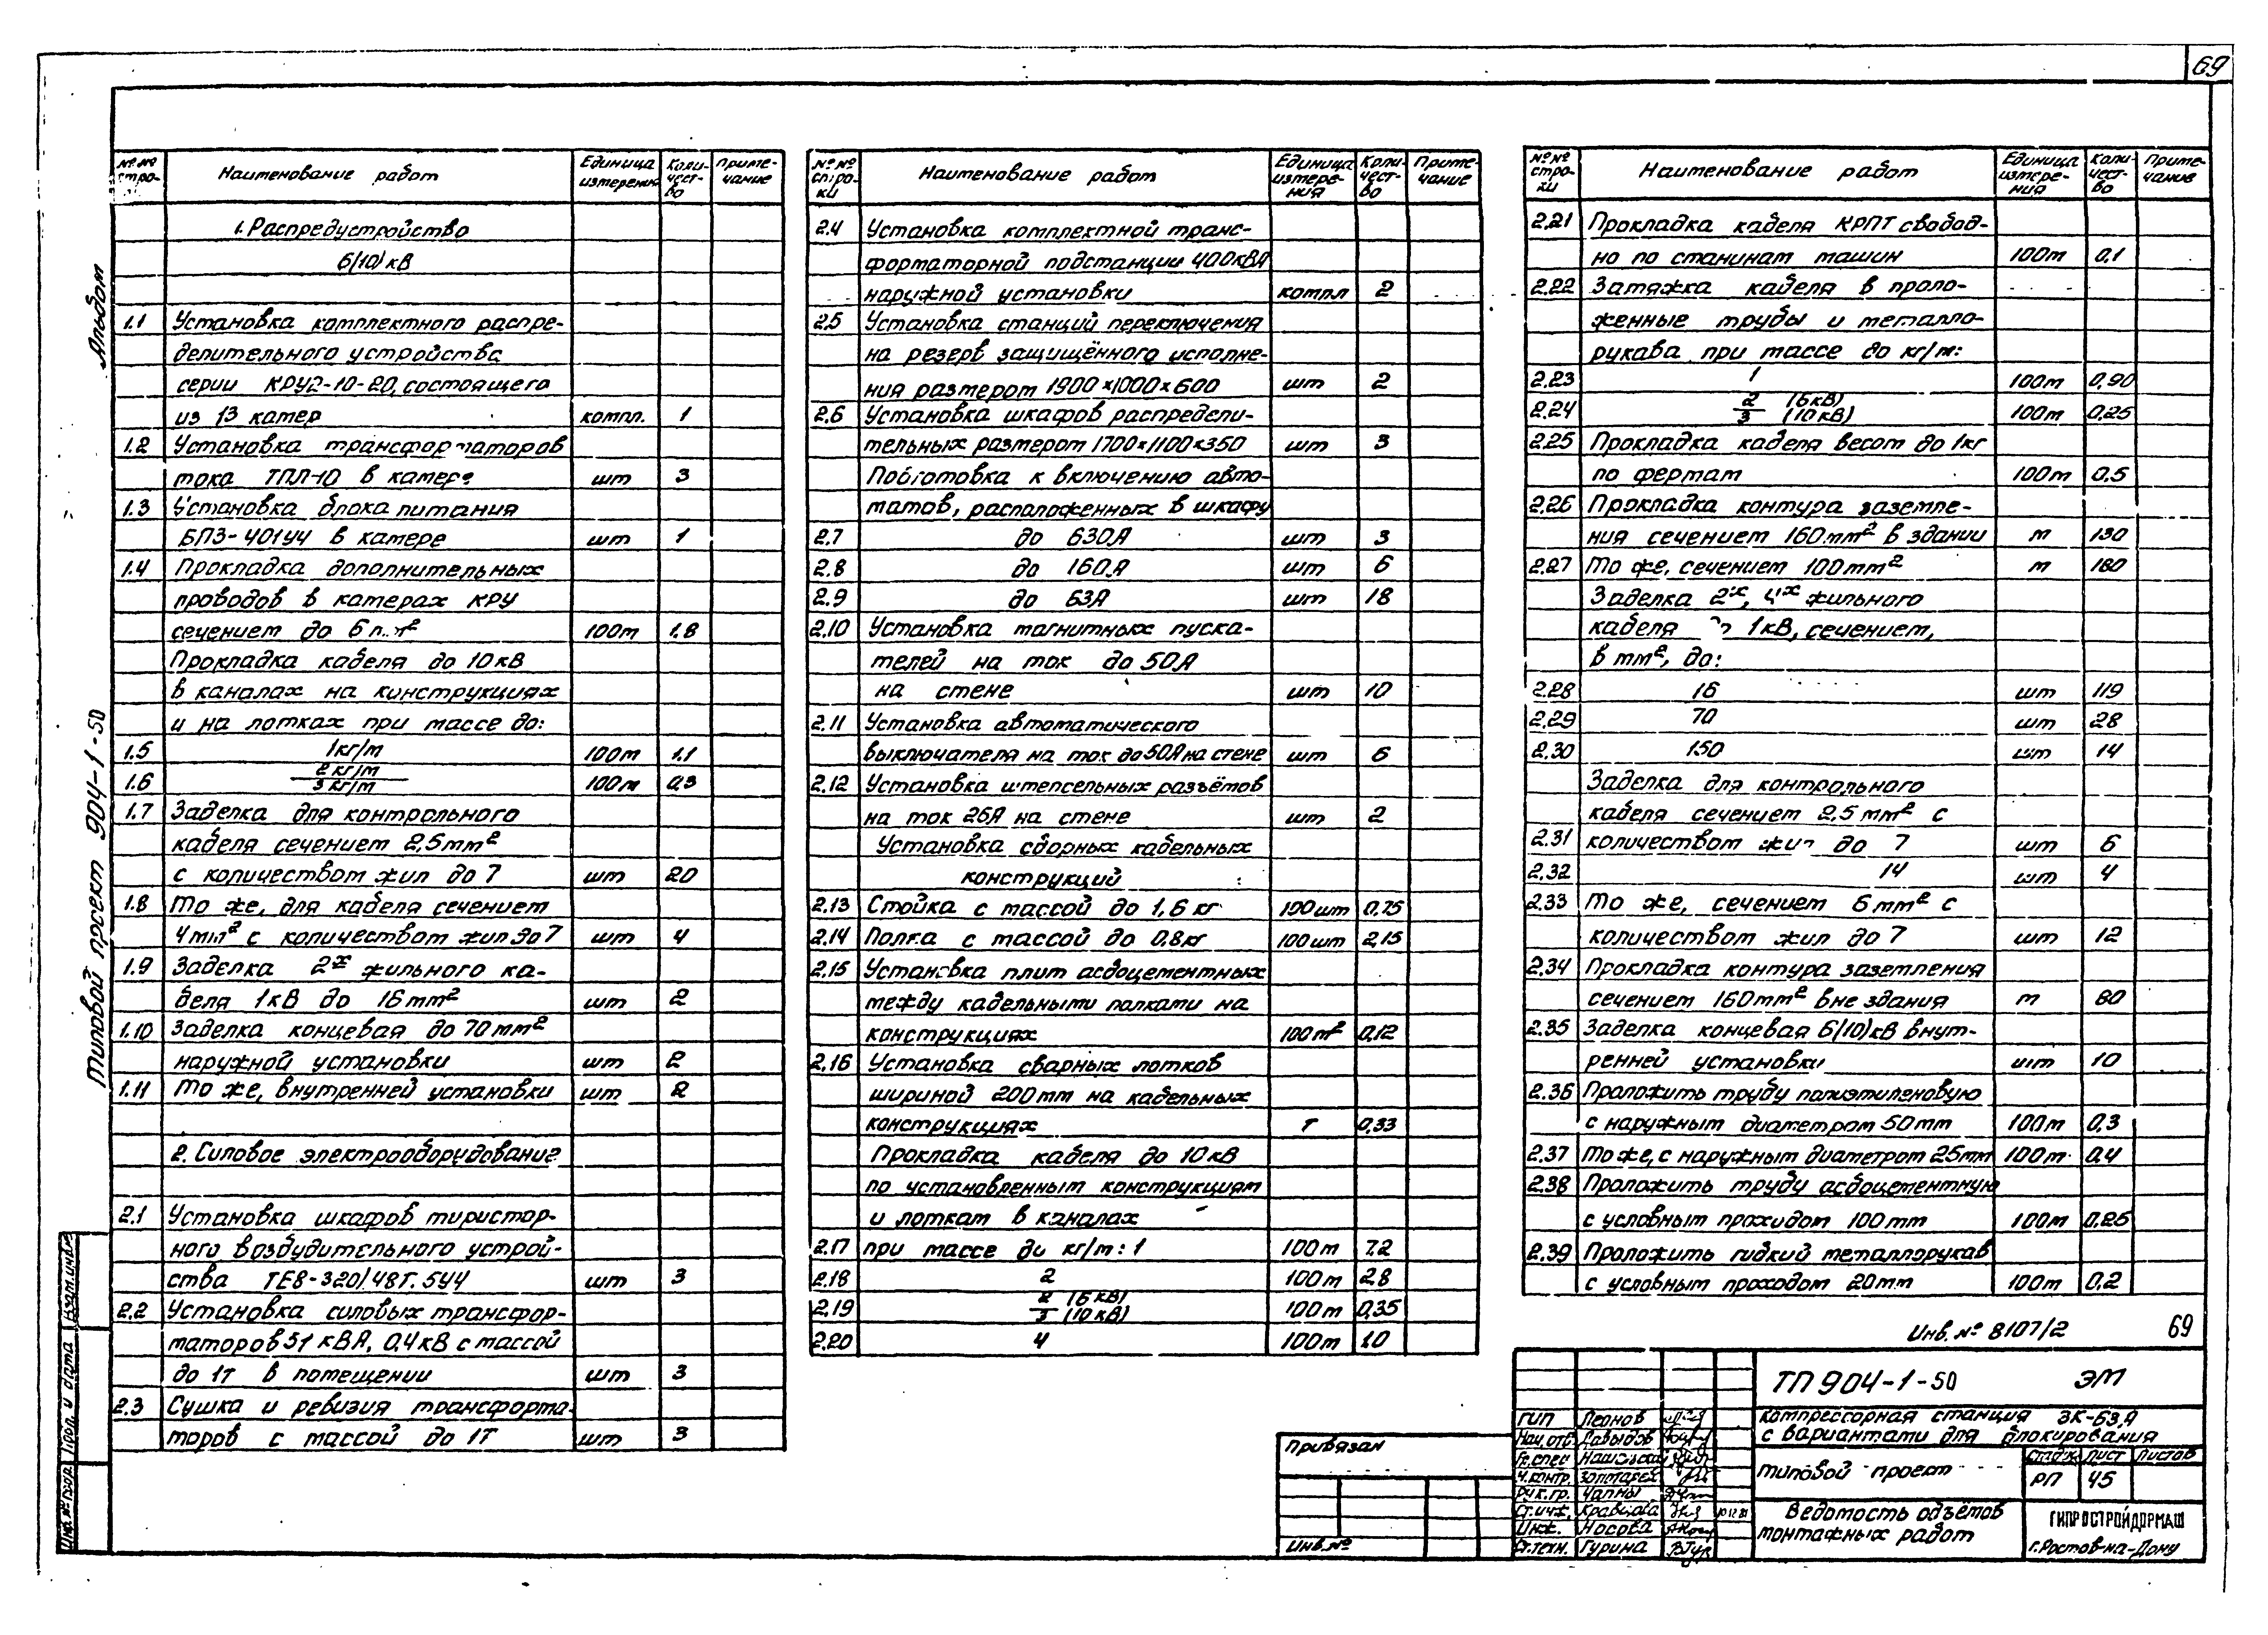 69
№№ стро- Наименование работ Единица измерения Коли- чест- во Приме- чание
1. Распредустройство
6(10) кВ
1.1 Установка комплектного распре-
делительного устройства
серии КРУ2-10-20, состоящего
из 13 камер компл. 1
1.2 Установка трансформаторов
тока ТПЛ-10 в камере шт 3
1.3 Установка блока питания
БПЗ-401У4 в камере шт 1
1.4 Прокладка дополнительных
проводов в камерах КРУ
сечением до 6 мм² 100м 1,8
Прокладка кабеля до 10 кВ
в каналах на конструкциях
и на лотках при массе до:
1.5 1кг/м 100м 1.1
1.6 2 кг/м
3 кг/м 100м 0,3
1.7 Заделка для контрольного
кабеля сечением 2,5 мм²
с количеством жил до 7 шт 20
1.8 То же, для кабеля сечением
4мм² с количеством жил до 7 шт 4
1.9 Заделка 2х жильного ка-
беля 1кВ до 16 мм² шт 2
1.10 Заделка концевая до 70 мм²
наружной установки шт 2
1.11 То же, внутренней установки шт 2
2. Силовое электрооборудование
2.1 Установка шкафов тиристор-
ного возбудительного устрой-
ства ТЕ8-320/48Т. 5У4 шт 3
2.2 Установка силовых трансфор-
маторов 51 кВА, 0,4 кВ с массой
до 1т в помещении шт 3
2.3 Сушка и ревизия трансформа-
торов с массой до 1т шт 3
№№ стро- ки Наименование работ Единица измере- ния Коли- чест- во Приме- чание
2.4 Установка комплектной транс-
форматорной подстанции 400кВА
наружной установки компл 2
2.5 Установка станций переключения
на резерв защищённого исполне-
ния размером 1900×1000×600 шт 2
2.6 Установка шкафов распредели-
тельных размером 1700×1100×350 шт 3
Подготовка к включению авто-
матов, расположенных в шкафу
2.7 до 630А шт 3
2.8 до 160А шт 6
2.9 до 63А шт 18
2.10 Установка магнитных пуска-
телей на ток до 50А
на стене шт 10
2.11 Установка автоматического
выключателя на ток до 50А на стене шт 6
2.12 Установка штепсельных разъёмов
на ток 25А на стене шт 2
Установка сборных кабельных
конструкций
2.13 Стойка с массой до 1,6 кг 100шт 0,75
2.14 Полка с массой до 0,8кг 100шт 2,15
2.15 Установка плит асбоцементных
между кабельными полками на
конструкциях 100м² 0,12
2.16 Установка сварных лотков
шириной 200мм на кабельных
конструкциях т 0,33
Прокладка кабеля до 10 кВ
по установленным конструкциям
и лоткам в каналах
2.17 при массе до кг/м: 1 100м 7.2
2.18 2 100м 2.8
2.19 2 (6 кВ)
3 (10 кВ) 100м 0,35
2.20 4 100м 1.0
№№ стро- ки Наименование работ Единица измере- ния Коли- чест- во Приме- чание
2.21 Прокладка кабеля КРПТ свобод-
но по станинам машин 100м 0,1
2.22 Затяжка кабеля в проло-
женные трубы и металло-
рукава при массе до кг/м:
2.23 1 100м 0,90
2.24 2 (6кВ)
3 (10кВ) 100м 0,25
2.25 Прокладка кабеля весом до 1кг
по фермам 100м 0,5
2.26 Прокладка контура заземле-
ния сечением 160мм² в здании м 130
2.27 То же, сечением 100мм² м 180
Заделка 2х, 4х жильного
кабеля до 1кВ, сечением,
в мм², до:
2.28 16 шт 119
2.29 70 шт 28
2.30 150 шт 14
Заделка для контрольного
кабеля сечением 2,5 мм² с
2.31 количеством жил до 7 шт 6
2.32 14 шт 4
2.33 То же, сечением 6 мм² с
количеством жил до 7 шт 12
2.34 Прокладка контура заземления
сечением 160мм² вне здания м 80
2.35 Заделка концевая 6(10)кВ внут-
ренней установки шт 10
2.36 Проложить трубу полиэтиленовую
с наружным диаметром 50 мм 100м 0,3
2.37 То же, с наружным диаметром 25мм 100м 0,4
2.38 Проложить трубу асбоцементную
с условным проходом 100 мм 100м 0,25
2.39 Проложить гибкий металлорукав
с условным проходом 20мм 100м 0,2
Инв. № 8107/2 69
Альбом
Типовой проект 904-1-50
Взам. инв.№
Подп. и дата
Инв. № подл.
Привязан
Инв. №
ТП 904-1-50 ЭМ
Компрессорная станция 3К-63А
с вариантами для блокирования
Типовой проект
Стадия Лист Листов
РП 45
Ведомость объёмов
монтажных работ
ГИПРОСТРОЙДОРМАШ
г. Ростов-на-Дону
ГИП Леонов
Нач. отд. Давыдов
Гл. спец
Н. контр. Золотарев
Рук. гр. Чапны
Ст. инж. Кравцова
Инж. Носова
Ст. техн. Гурина